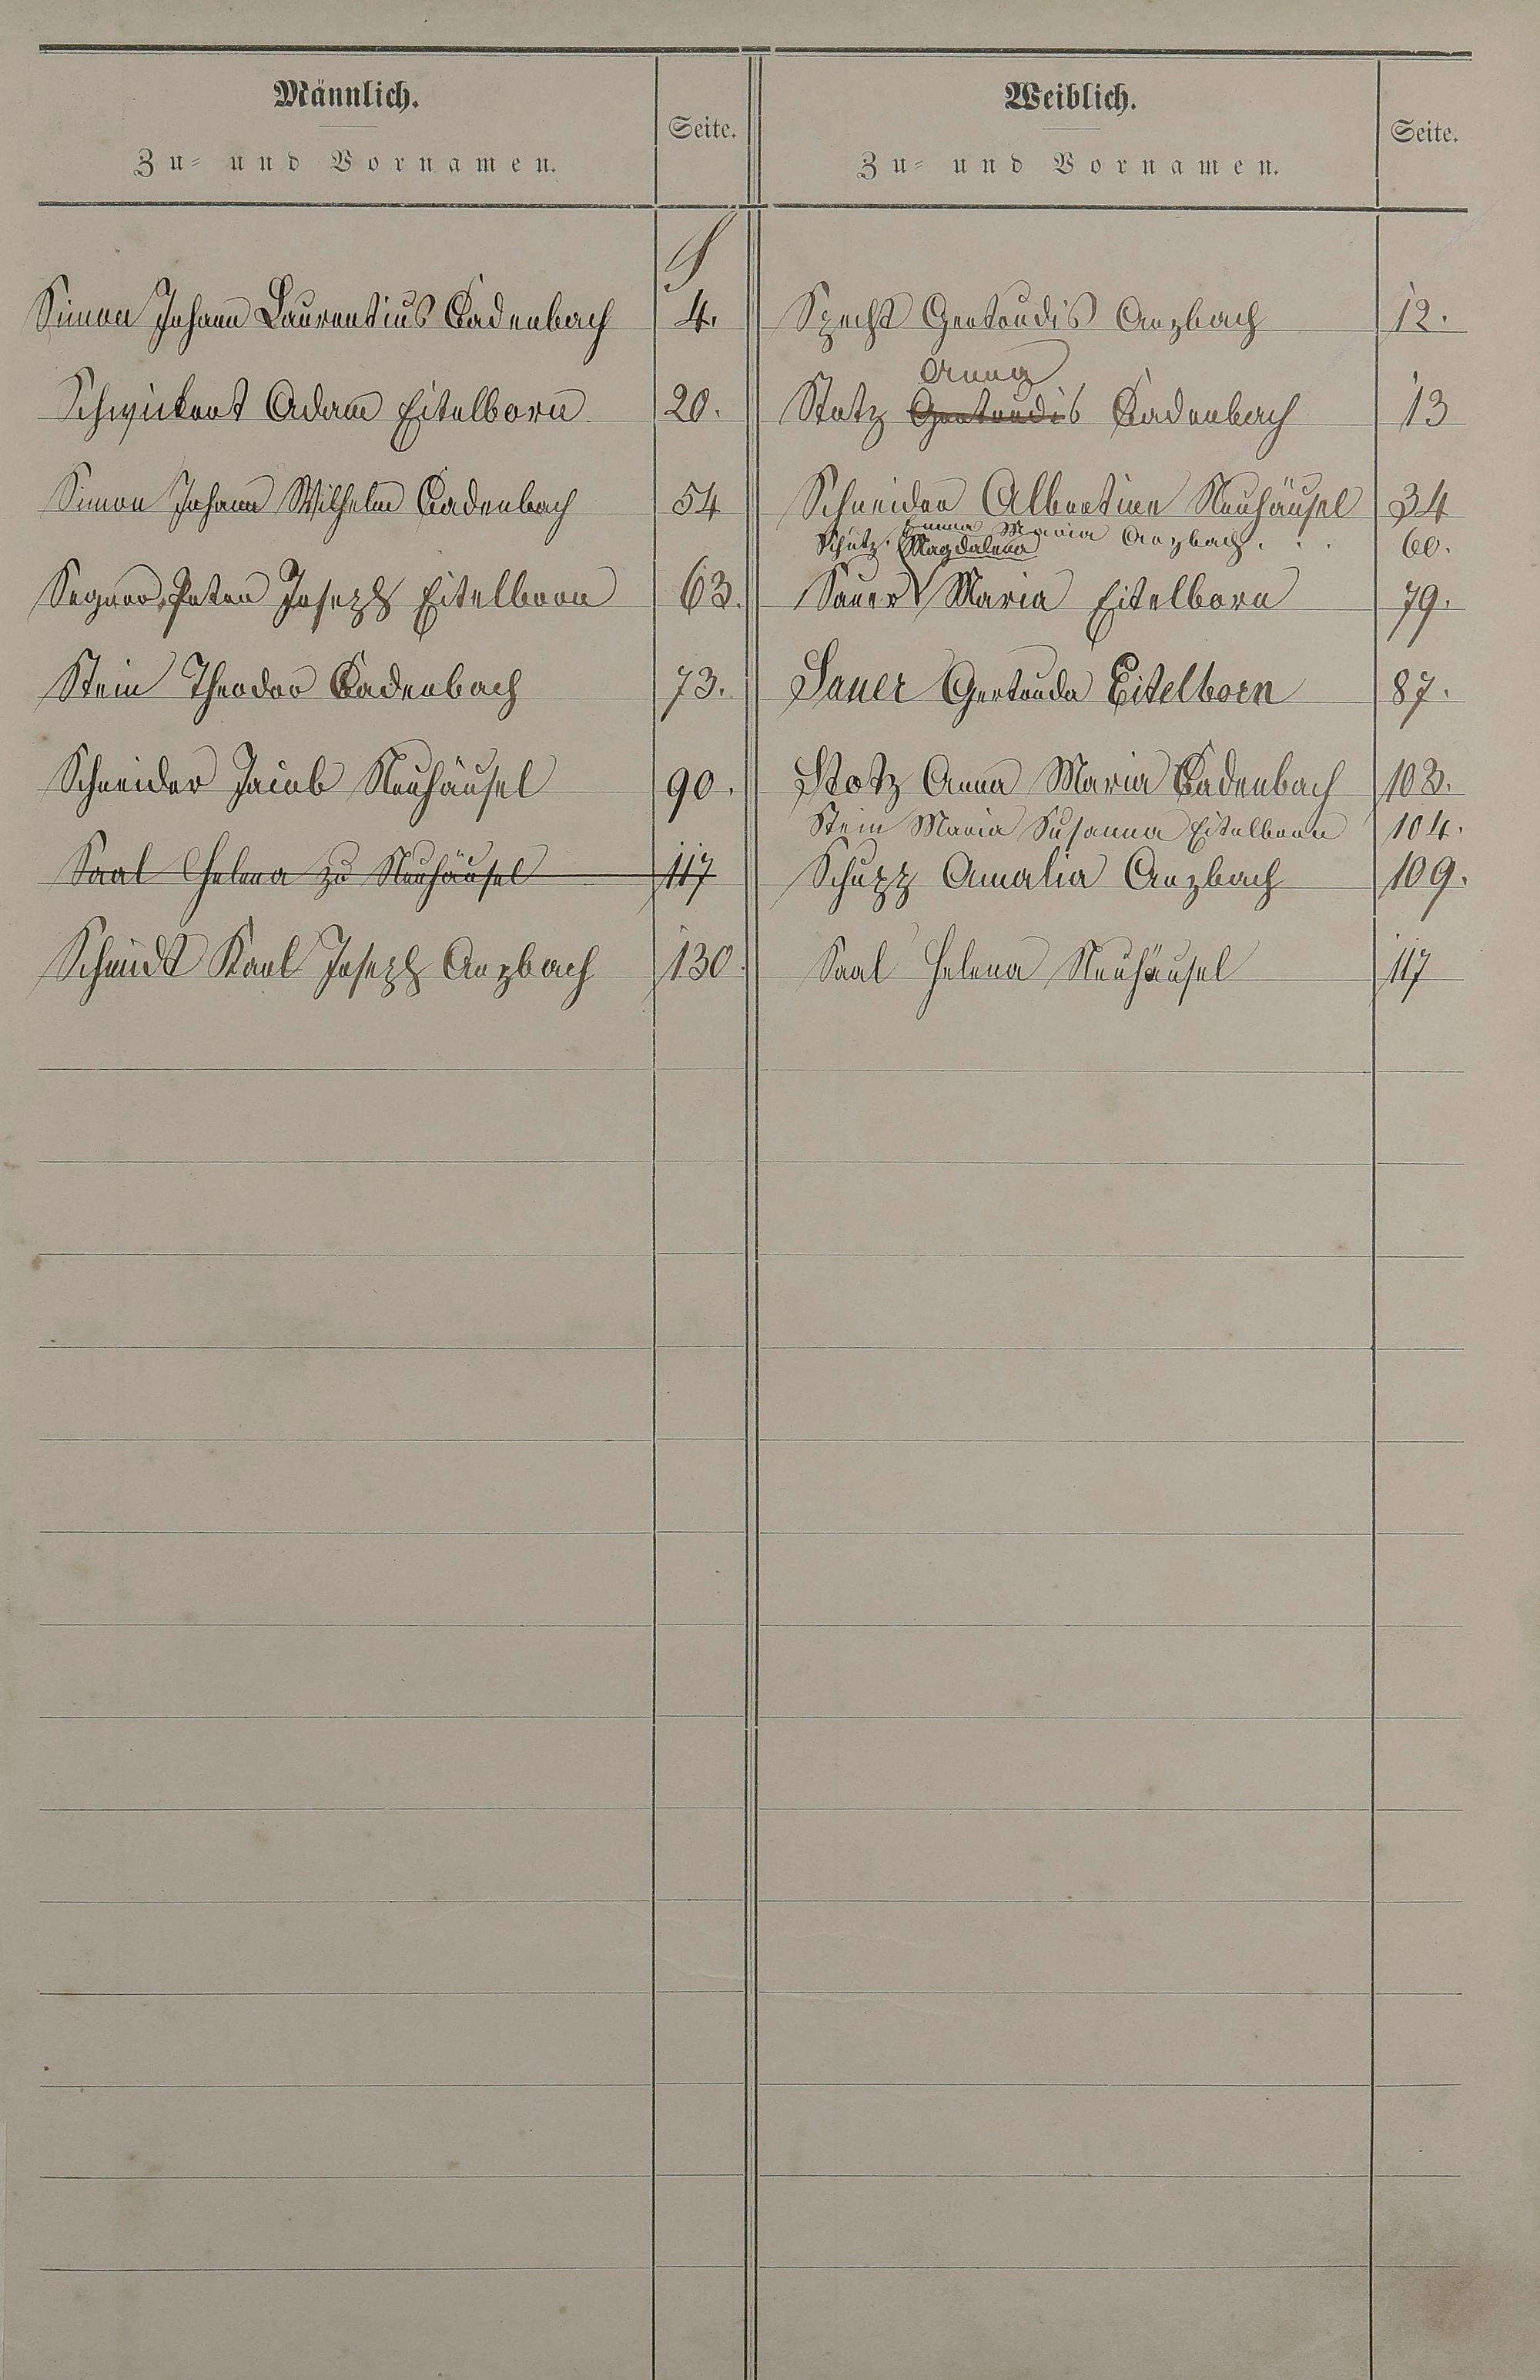 Männlich.
Zu- und Vornamen.
Seite.
Weiblich.
Zu- und Vornamen.
Seite.
S
Simon Johann Laurentius Cadenbach 4.
Schwickert Adam Eitelborn 20.
Simon Johann Wilhelm Cadenbach 54
Peter Joseph Eitelborn 63.
Stein Theodor Cadenbach 73.
Schneider Jacob Neuhäusel 90.
Saal Helena zu Neuhäusel 117
Schmidt Karl Joseph Arzbach 130.
Specht Gertrudis Arzbach 12.
Anna
Stotz Gertrudis Cadenbach 13
Schneider Albertine Neuhäusel 34
Emma Maria
Schütz. Magdalena Arzbach . . . 60.
Sauer Maria Eitelborn 79.
Sauer Gertruda Eitelborn 87.
Stotz Anna Maria Cadenbach 103.
Stein Maria Susanna Eitelborn 104.
Schupp Amalia Arzbach 109.
Saal Helena Neuhäusel 117